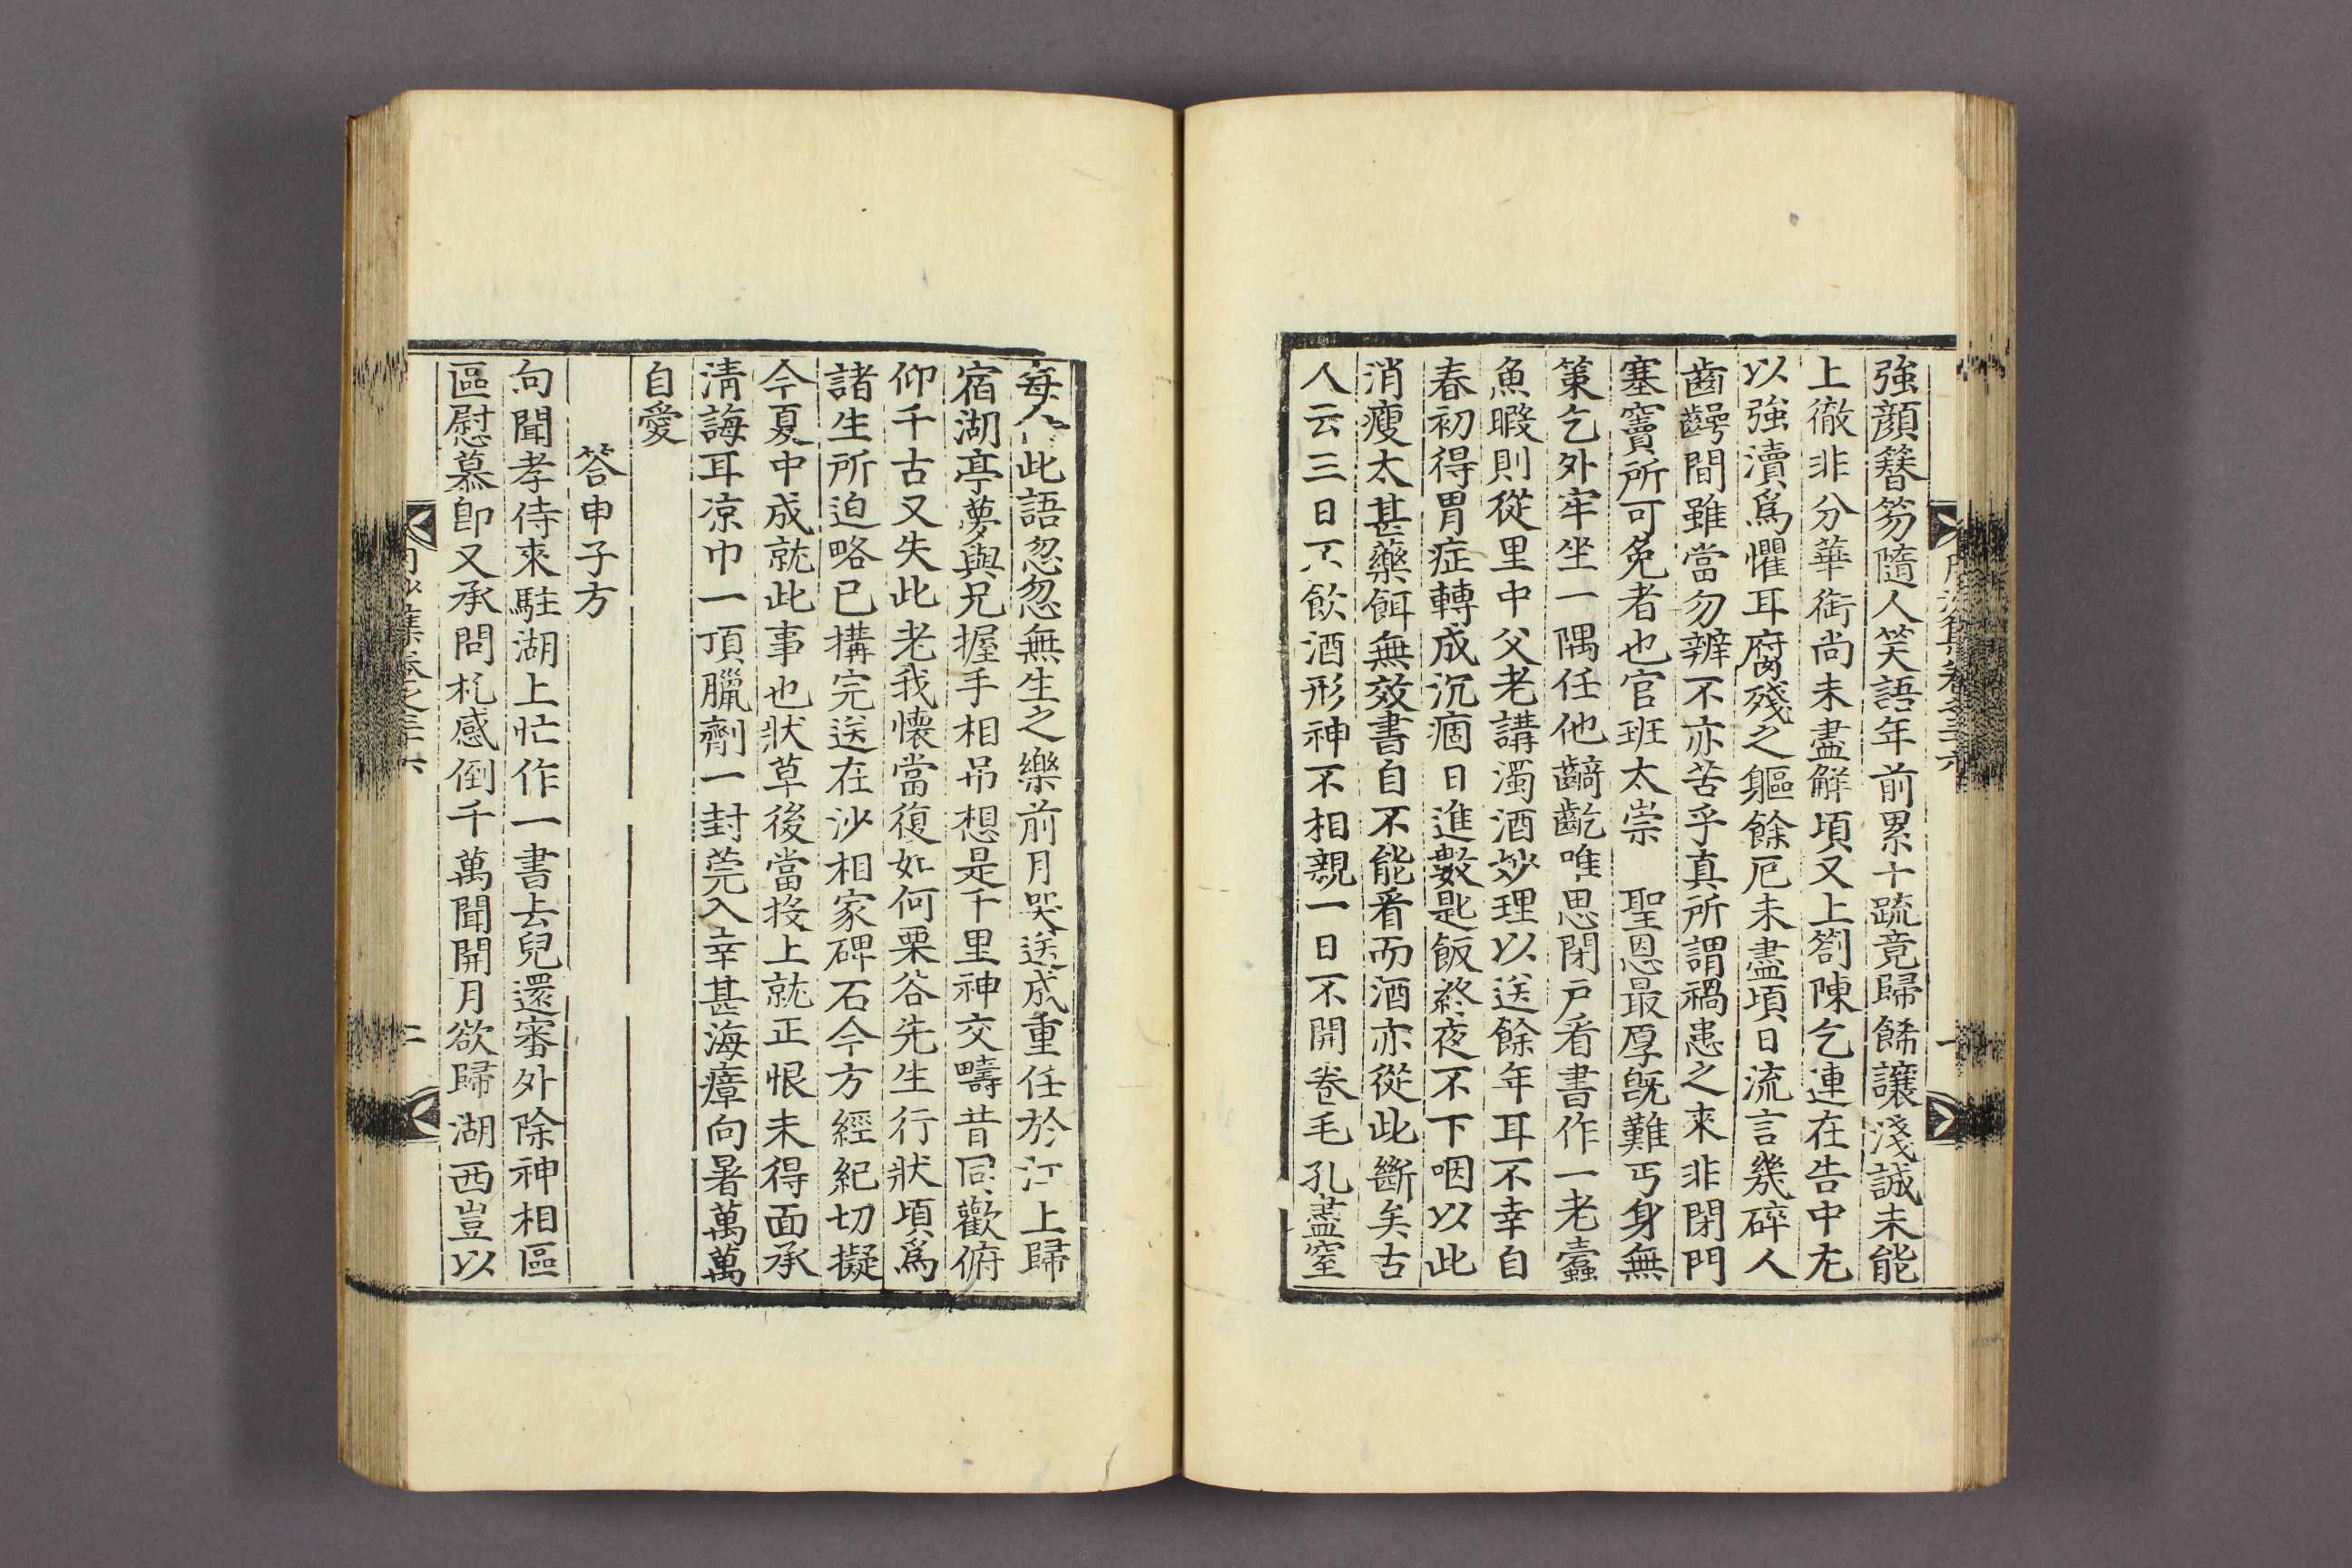 強顔簪笏隨人笑語年前累十疏竟歸餙讓淺誠未能
上徹非分華銜尚未盡解頃又上劄陳乞連在告中尢
以強瀆爲懼耳腐殘之軀餘厄未盡頃日流言幾碎人
齒齶間雖當勿辨不亦苦乎真所謂禍患之來非閉門
塞竇所可免者也官班太崇 聖恩最厚旣難丐身無
策乞外牢坐一隅任他齮齕唯思閉戶看書作一老蠹
魚暇則從里中父老講濁酒妙理以送餘年耳不幸自
春初得胃症轉成沉痼日進數匙飯終夜不下咽以此
消瘦太甚藥餌無效書自不能看而酒亦從此斷矣古
人云三日不飮酒形神不相親一日不開卷毛孔盡窒
每 此語忽忽無生之樂前月哭送成重任於江上歸
宿湖亭夢與兄握手相吊想是千里神交疇昔同歡俯
仰千古又失此老我懷當復如何栗谷先生行狀頃爲
諸生所迫略已搆完送在沙相家碑石今方經紀切擬
今夏中成就此事也狀草後當投上就正恨未得面承
淸誨耳凉巾一頂臘劑一封莞入幸甚海瘴向暑萬萬
自愛
答申子方
向聞孝侍來駐湖上忙作一書去兒還審外除神相區
區慰慕卽又承問札感倒千萬聞開月欲歸湖西豈以
月沙集卷之三十六
一
二